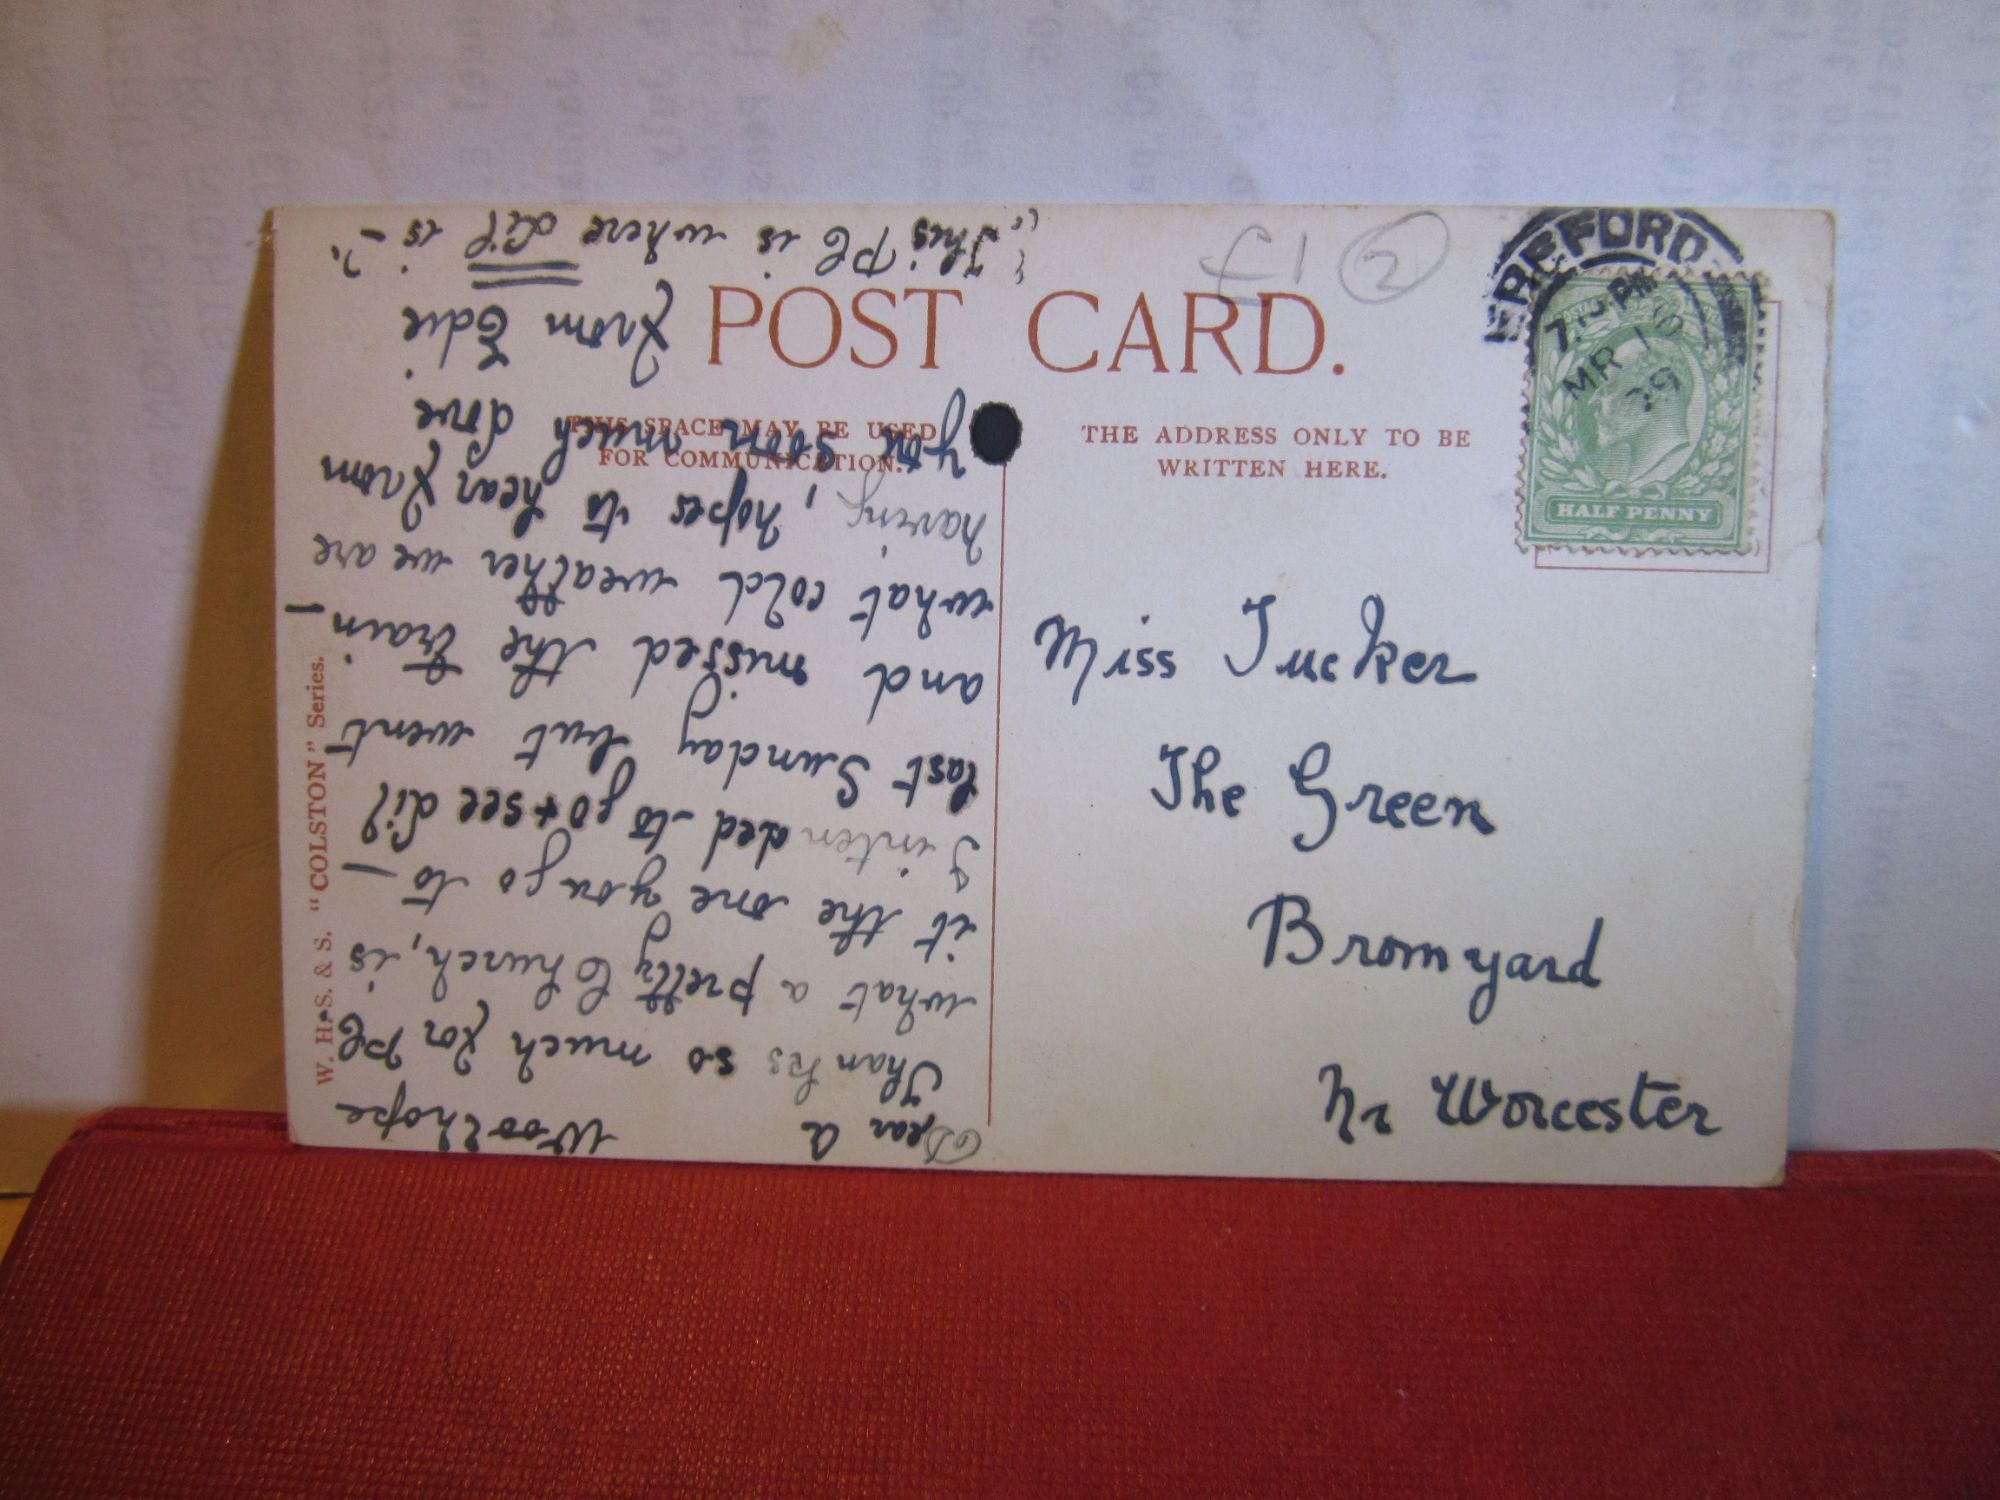 POST CARD.
THIS SPACE MAY BE USED
FOR COMMUNICATION.
THE ADDRESS ONLY TO BE
WRITTEN HERE.
W. H. S. & S. "COLSTON" Series.
£1 2
HEREFORD
7.15 PM
MR 1
HALF PENNY
Miss Tucker
The Green
Bromyard
Nr Worcester
Woolhope
Dear A
Thanks so much for PC
what a pretty Church, is
it the one you go to –
I intended to go + see Lil
last Sunday but went
and missed the train –
what cold weather we are
having, hopes to hear from
you soon much love
from Edie
"This PC is where Lil is –"